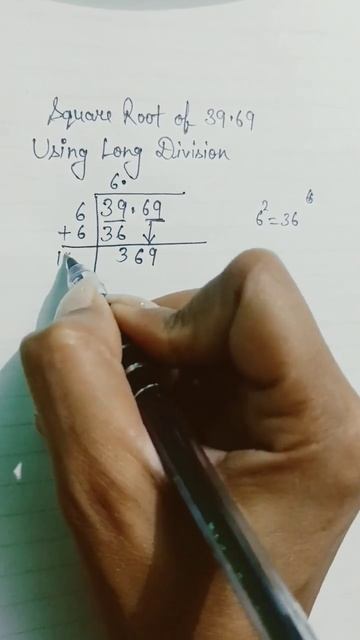 Square Root of 39.69
Using Long Division
6.
6 39.69
+ 6 36
1
369
6²=36